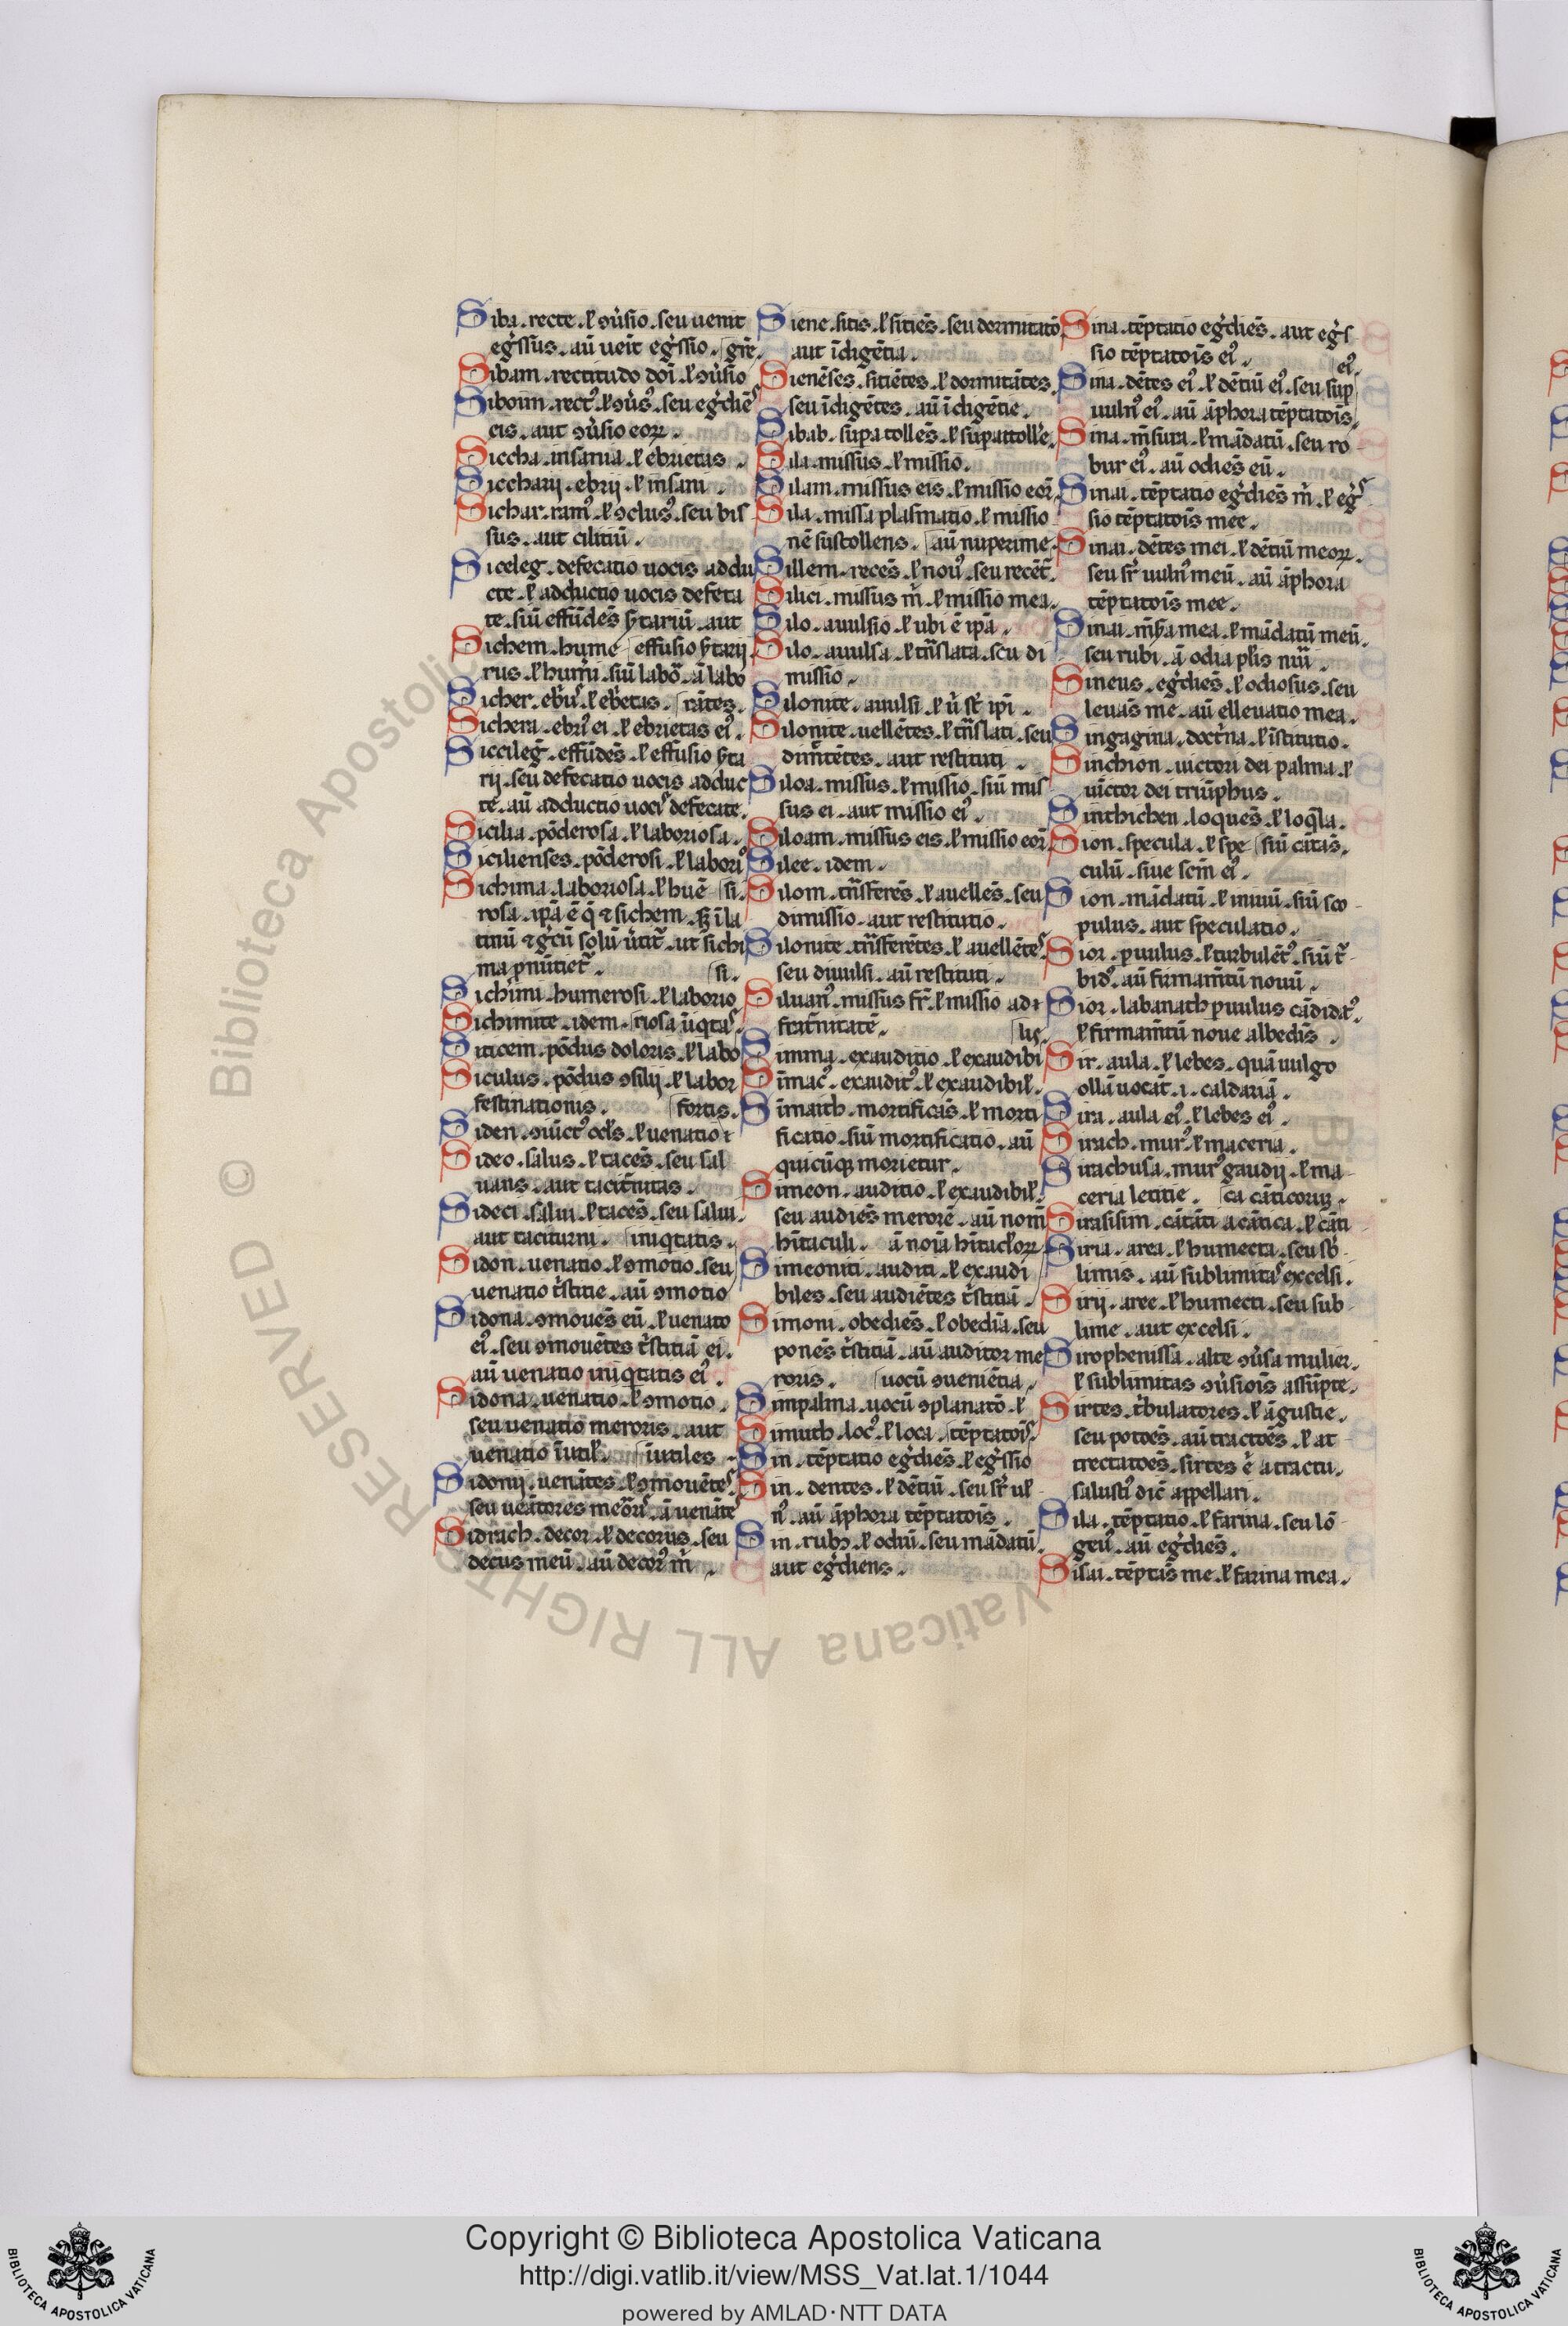 Siba. recte. ł ꝯůsio. seu uenit
eg̊ssus. aū ueīt eg̊ssio. gr̄e.
Sibam. rectitudo doī. ł ꝯůsio
Siboim. rectꝰ. ł ꝯůsꝰ. seu eg̊diēs
eis. aut ꝯůsio eoꝝ.
Siccha. insania. ł ebrietas.
Siccharij. ebrij. ł insani.
Sichar. ramꝰ. ł ꝯclusꝰ. seu bis
sus. aut cilitiū.
Siceleg. defecatio uocis addu
cte. ł adductio uocis defeca
te. siū effūdēs ẜtariū. aut
Sichem. hume effusio ẜtarij.
rus. ł humi. siū labō. ā labo
Sicher. ebri. ł ebetas. rātes.
Sichera. ebrꝰ ei. ł ebrietas eiꝰ.
Sicileg. effūdēs. ł effusio ẜta
rij. seu defecatio uocis adduc
te. aū adductio uocis defecate.
Sicilia. pōderosa. ł laboriosa.
Sicilienses. pōderosi. ł laborio
Sichima. laboriosa. ł hue si.
rosa. ipā ē q̄ ⁊ sichem. ꝫ ī la
tinū ⁊ g̊cū solū ůtit̄. ut sichi
ma pnūtiet̄. si.
Sichimi. humerosi. ł laborio
Sichimite. idem. riosa ūiq̇tas.
Siticem. pōdus doloris. ł labo
Siculus. pōdus ꝯsilij. ł labor
festinationis. fortis.
Siden. ꝯiūctꝰ ocl̄s. ł uenatio
Sideo. salus. ł tacēs. seu sal
uans. aut tacit̄nitas.
Sideci. salui. ł tacēs. seu salui.
aut taciturni. iniq̇tatis.
Sidon. uenatio. ł ꝯmotio. seu
uenatio t̊stitie. aū ꝯmotio
Sidona. ꝯmouēs eū. ł uenato
eiꝰ. seu ꝯmouētes t̊stitiā ei.
aū uenatio iniq̇tatis eiꝰ.
Sidona. uenatio. ł ꝯmotio.
seu uenatio meroris. aut
uenatio īutił. īutiles
Sidonij. uenātes. ł ꝯmouētes
seu ueātores meōris. ā uenātes
Sidrach. decor. ł decorus. seu
decus meū. aū decorꝰ m̊.
Siene. sitis. ł sitiēs. seu dormitatō
aut īdigētia.
Sienēses. sitiētes. ł dormitātes.
seu īdigētes. aū īdigētie.
Sibab. supa tollēs. ł supattolle.
Sila. missus. ł missio.
Silam. missus eis. ł missio eoꝝ.
Sila. missa plasmatio. ł missio
nē sustollens. aū nuperime.
Sillem. recēs. ł nouꝰ. seu recēt̄.
Silici. missus m̊. ł missio mea.
Silo. auulsio. ł ubi ē ipā.
Silo. auulsa. ł tn̄slata. seu di
missio.
Silonite. auulsi. ł ů st̄ ipī.
Silonite. uellētes. ł tn̄slati. seu
dimittētes. aut restituti.
Siloa. missus. ł missio. siū mis
sus ei. aut missio eiꝰ.
Siloam. missus eis. ł missio eoꝝ.
Silee. idem.
Silom. tn̄sferēs. ł auellēs. seu
dimissio. aut restitutio.
Silonite. tn̄sferētes. ł auellētes
seu diuulsi. aū restituti.
Siluanꝰ. missus fr̄. ł missio ad
frat̄nitatē. lis.
Simma. exauditio. ł exaudibi
Simacꝰ. exauditꝰ. ł exaudibił.
Simaith. mortificās. ł morti
ficatio. siū mortificatio. aū
quicūqꝫ morietur.
Simeon. auditio. ł exaudibił.
seu audiēs merorē. aū nomē
hītaculi. ā noīa hītacl̄oꝝ
Simeoniti. auditi. ł exaudi
biles. seu audiētes t̊stitiā.
Simoni. obediēs. ł obediā. seu
ponēs t̊stitiā. aū auditor me
roris. uocū ꝯueniētia.
Simpalma. uocū ꝯplanatō. ł
Simuth. locꝰ. ł loca. tēptatōis.
Sin. tēptatio eg̊diēs. ł eg̊ssio
Sin. dentes. ł dētiū. seu st̄ ul
nꝰ. aū āphora tēptatōis.
Sin. rubꝫ. ł odiū. seu mādatū.
aut eg̊diens.
Sina. tēptatio eg̊diēs. aut eg̊s
sio tēptatōis eiꝰ. eiꝰ.
Sina. dētes eiꝰ. ł dētiū eiꝰ. seu sup
uulnꝰ eiꝰ. aū āphora tēptatōis
Sina. m̄sura. ł mādatū. seu ro
bur eiꝰ. aū odiēs eū.
Sinai. tēptatio eg̊diēs m̊. ł eg̊s
sio tēptatōis mee.
Sinai. dētes mei. ł dētiū meoꝝ.
seu st̄ uulnꝰ meū. aū āphora
tēptatōis mee.
Sinai. m̄sura mea. ł mādatū meū.
seu rubi. ā odia pl̄is nr̄i.
Sineus. eg̊diēs. ł odiosus. seu
leuās me. aū elleuatio mea.
Singagina. doct̊na. ł īstitutio.
Sinchion. uictori dei palma. ł
uīctor dei triūphus.
Sinthichen. loquēs. ł loq̄la.
Sion. specula. ł spe siū cātas.
culū. siue scm̄ eiꝰ.
Sion. mādatū. ł inuiū. siū sco
pulus. aut speculatio.
Sior. puulus. ł turbulētꝰ. siū t̄
bidꝰ. aū firmam̄tū nouū.
Sior. labanath puulus cādidꝰ.
ł firmam̄tū noue albedīs.
Sir. aula. ł lebes. quā uulgo
ollā uocāt. i. caldariā.
Sira. aula eiꝰ. ł lebes eiꝰ.
Sirach. murꝰ. ł maceria.
Sirachusa. murꝰ gaudij. ł ma
ceria letitie. ca cāticoꝝ.
Sirasisim. cātāti a cātica. ł cāti
Siria. area. ł humecta. seu sb̄
limis. aū sublimitas excelsi.
Sirij. aree. ł humecti. seu sub
lime. aut excelsi.
Sirophenissa. alte ꝯůsa mulier.
ł sublimitas ꝯůsiōis assūpte.
Sirtes. t̊bulatores. ł āgustie.
seu potōes. aū tractōes. ł at
trectatōes. sirtes ē a tractu.
salustꝰ dīc appellari.
Sila. tēptatio. ł farina. seu lō
geuꝰ. aū eg̊diēs.
Sisai. tēptās me. ł farina mea.
Copyright © Biblioteca Apostolica Vaticana
http://digi.vatlib.it/view/MSS_Vat.lat.1/1044
powered by AMLAD·NTT DATA
BIBLIOTECA APOSTOLICA VATICANA
BIBLIOTECA APOSTOLICA VATICANA
© Biblioteca Apostolica Vaticana ALL RIGHTS RESERVED